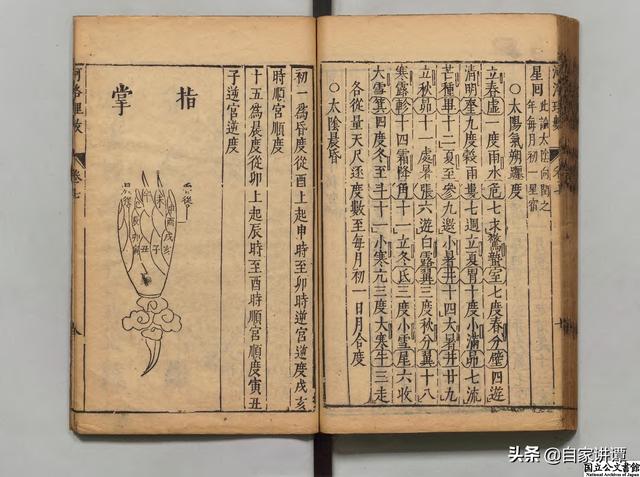 河洛理數 卷七
星回
此論太陰向閏之
年每月初一星宿
○太陽氣朔躔度
立春虛一度雨水危七求驚蟄室七度春分壁四遊
清明奎九度穀雨婁七週立夏胃十度小滿昴七流
芒種畢十二夏至參九遐小暑井十四大暑井廿九
立秋昴十一處暑張六遊白露翼三度秋分翼十八
寒露軫十四霜降角十一立冬氐三度小雪尾六收
大雪箕四度冬至斗十一小寒亢三度大寒牛三走
各從量天尺逐度數至每月初一日月合度
○太陰晨昏
初一為昏度從酉上起申時至卯時逆宮逆度戌亥
時順宮順度
十五為晨度從卯上起辰時至酉時順宮順度寅丑
子逆宮逆度
指掌
午 未 酉 戌 亥
卯 寅 丑 子
河洛理數 卷七
头条 @自家讲谭
国立公文書館
National Archives of Japan